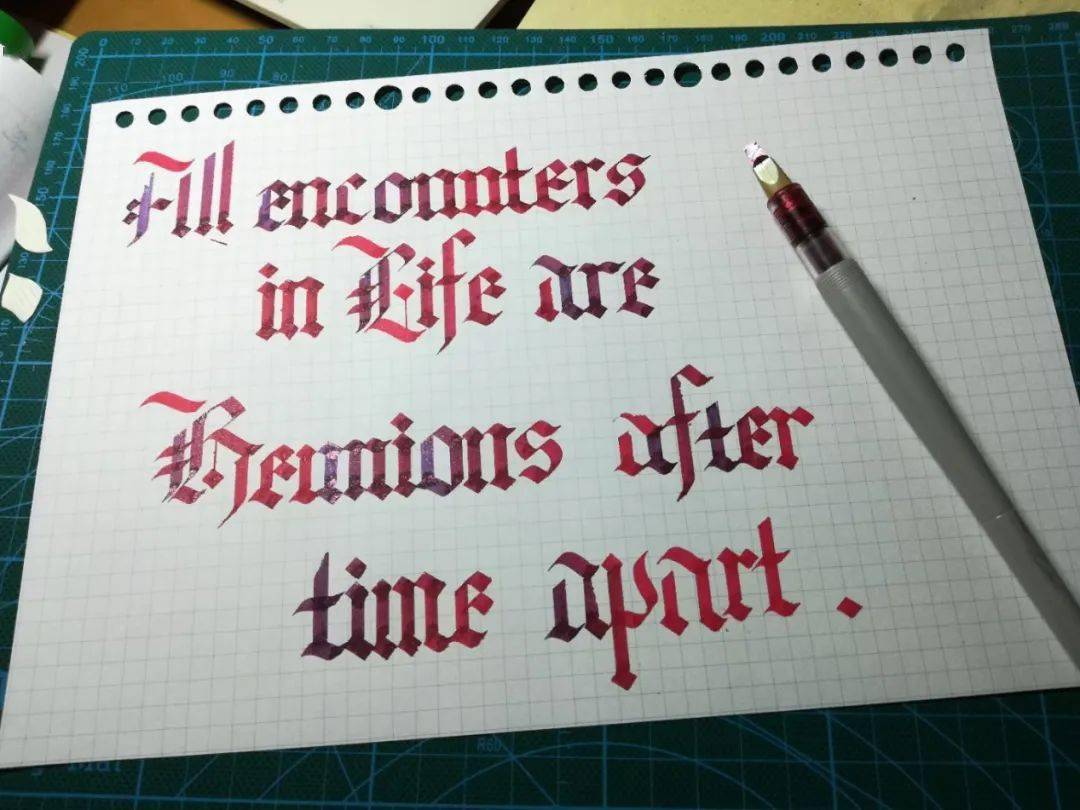 All encounters
in Life are
Reunions after
time apart.